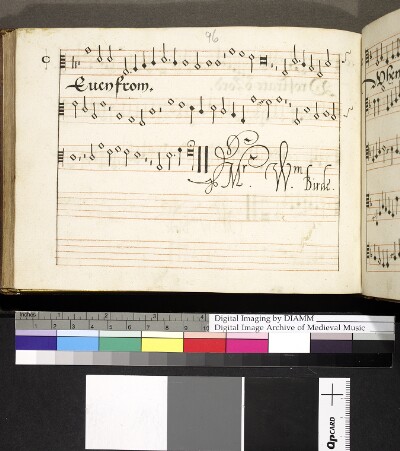 96
Euenfrom.
Mr. Wm. Birde.
Inches
Digital Imaging by DIAMM
Digital Image Archive of Medieval Music
QPCARD